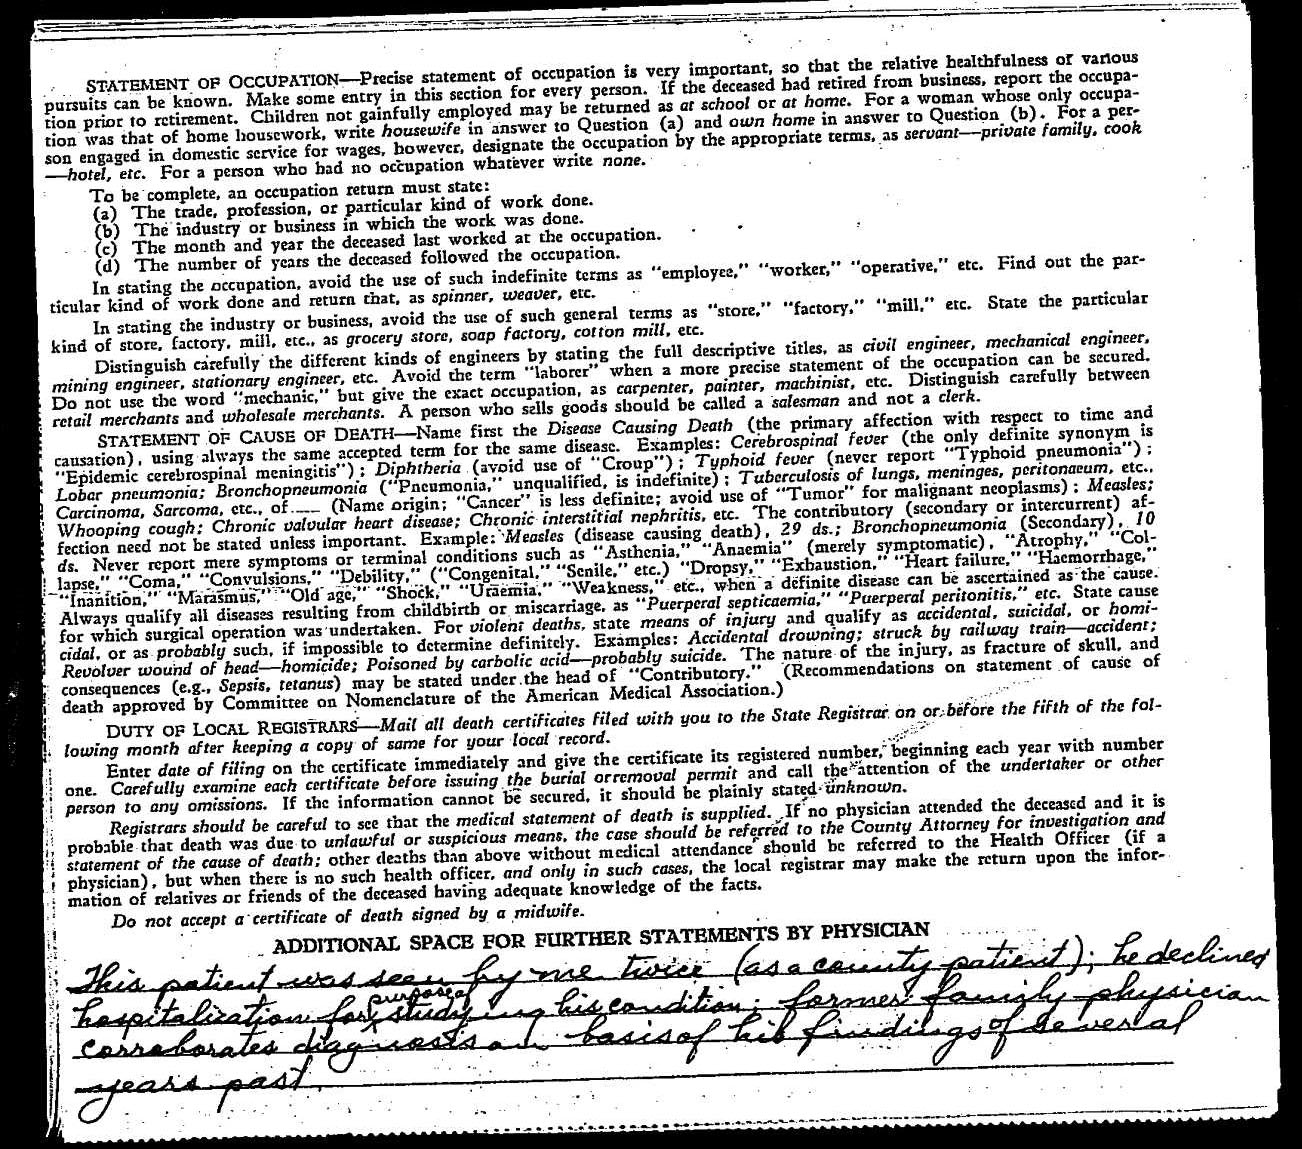 STATEMENT OF OCCUPATION—Precise statement of occupation is very important, so that the relative healthfulness of various
pursuits can be known. Make some entry in this section for every person. If the deceased had retired from business, report the occupa-
tion prior to retirement. Children not gainfully employed may be returned as at school or at home. For a woman whose only occupa-
tion was that of home housework, write housewife in answer to Question (a) and own home in answer to Question (b). For a per-
son engaged in domestic service for wages, however, designate the occupation by the appropriate terms, as servant—private family, cook
—hotel, etc. For a person who had no occupation whatever write none.
To be complete, an occupation return must state:
(a) The trade, profession, or particular kind of work done.
(b) The industry or business in which the work was done.
(c) The month and year the deceased last worked at the occupation.
(d) The number of years the deceased followed the occupation.
In stating the occupation, avoid the use of such indefinite terms as "employee," "worker," "operative," etc. Find out the par-
ticular kind of work done and return that, as spinner, weaver, etc.
In stating the industry or business, avoid the use of such general terms as "store," "factory," "mill," etc. State the particular
kind of store, factory, mill, etc., as grocery store, soap factory, cotton mill, etc.
Distinguish carefully the different kinds of engineers by stating the full descriptive titles, as civil engineer, mechanical engineer,
mining engineer, stationary engineer, etc. Avoid the term "laborer" when a more precise statement of the occupation can be secured.
Do not use the word "mechanic," but give the exact occupation, as carpenter, painter, machinist, etc. Distinguish carefully between
retail merchants and wholesale merchants. A person who sells goods should be called a salesman and not a clerk.
STATEMENT OF CAUSE OF DEATH—Name first the Disease Causing Death (the primary affection with respect to time and
causation), using always the same accepted term for the same disease. Examples: Cerebrospinal fever (the only definite synonym is
"Epidemic cerebrospinal meningitis"); Diphtheria (avoid use of "Croup"); Typhoid fever (never report "Typhoid pneumonia");
Lobar pneumonia; Bronchopneumonia ("Pneumonia," unqualified, is indefinite); Tuberculosis of lungs, meninges, peritonaeum, etc.,
Carcinoma, Sarcoma, etc., of ____ (Name origin; "Cancer" is less definite; avoid use of "Tumor" for malignant neoplasms); Measles;
Whooping cough; Chronic valvular heart disease; Chronic interstitial nephritis, etc. The contributory (secondary or intercurrent) af-
fection need not be stated unless important. Example: Measles (disease causing death), 29 ds.; Bronchopneumonia (Secondary), 10
ds. Never report mere symptoms or terminal conditions such as "Asthenia," "Anaemia" (merely symptomatic), "Atrophy," "Col-
lapse," "Coma," "Convulsions," "Debility," ("Congenital," "Senile," etc.) "Dropsy," "Exhaustion," "Heart failure," "Haemorrhage,"
"Inanition," "Marasmus," "Old age," "Shock," "Uraemia," "Weakness," etc., when a definite disease can be ascertained as the cause.
Always qualify all diseases resulting from childbirth or miscarriage, as "Puerperal septicaemia," "Puerperal peritonitis," etc. State cause
for which surgical operation was undertaken. For violent deaths, state means of injury and qualify as accidental, suicidal, or homi-
cidal, or as probably such, if impossible to determine definitely. Examples: Accidental drowning; struck by railway train—accident;
Revolver wound of head—homicide; Poisoned by carbolic acid—probably suicide. The nature of the injury, as fracture of skull, and
consequences (e.g., Sepsis, tetanus) may be stated under the head of "Contributory." (Recommendations on statement of cause of
death approved by Committee on Nomenclature of the American Medical Association.)
DUTY OF LOCAL REGISTRARS—Mail all death certificates filed with you to the State Registrar on or before the fifth of the fol-
lowing month after keeping a copy of same for your local record.
Enter date of filing on the certificate immediately and give the certificate its registered number, beginning each year with number
one. Carefully examine each certificate before issuing the burial orremoval permit and call the attention of the undertaker or other
person to any omissions. If the information cannot be secured, it should be plainly stated unknown.
Registrars should be careful to see that the medical statement of death is supplied. If no physician attended the deceased and it is
probable that death was due to unlawful or suspicious means, the case should be referred to the County Attorney for investigation and
statement of the cause of death; other deaths than above without medical attendance should be referred to the Health Officer (if a
physician), but when there is no such health officer, and only in such cases, the local registrar may make the return upon the infor-
mation of relatives or friends of the deceased having adequate knowledge of the facts.
Do not accept a certificate of death signed by a midwife.
ADDITIONAL SPACE FOR FURTHER STATEMENTS BY PHYSICIAN
This patient was seen by me twice (as a county patient); he declined
hospitalization for purpose of studying his condition; former family physician
corroborates diagnosis on basis of his findings of several
years past.